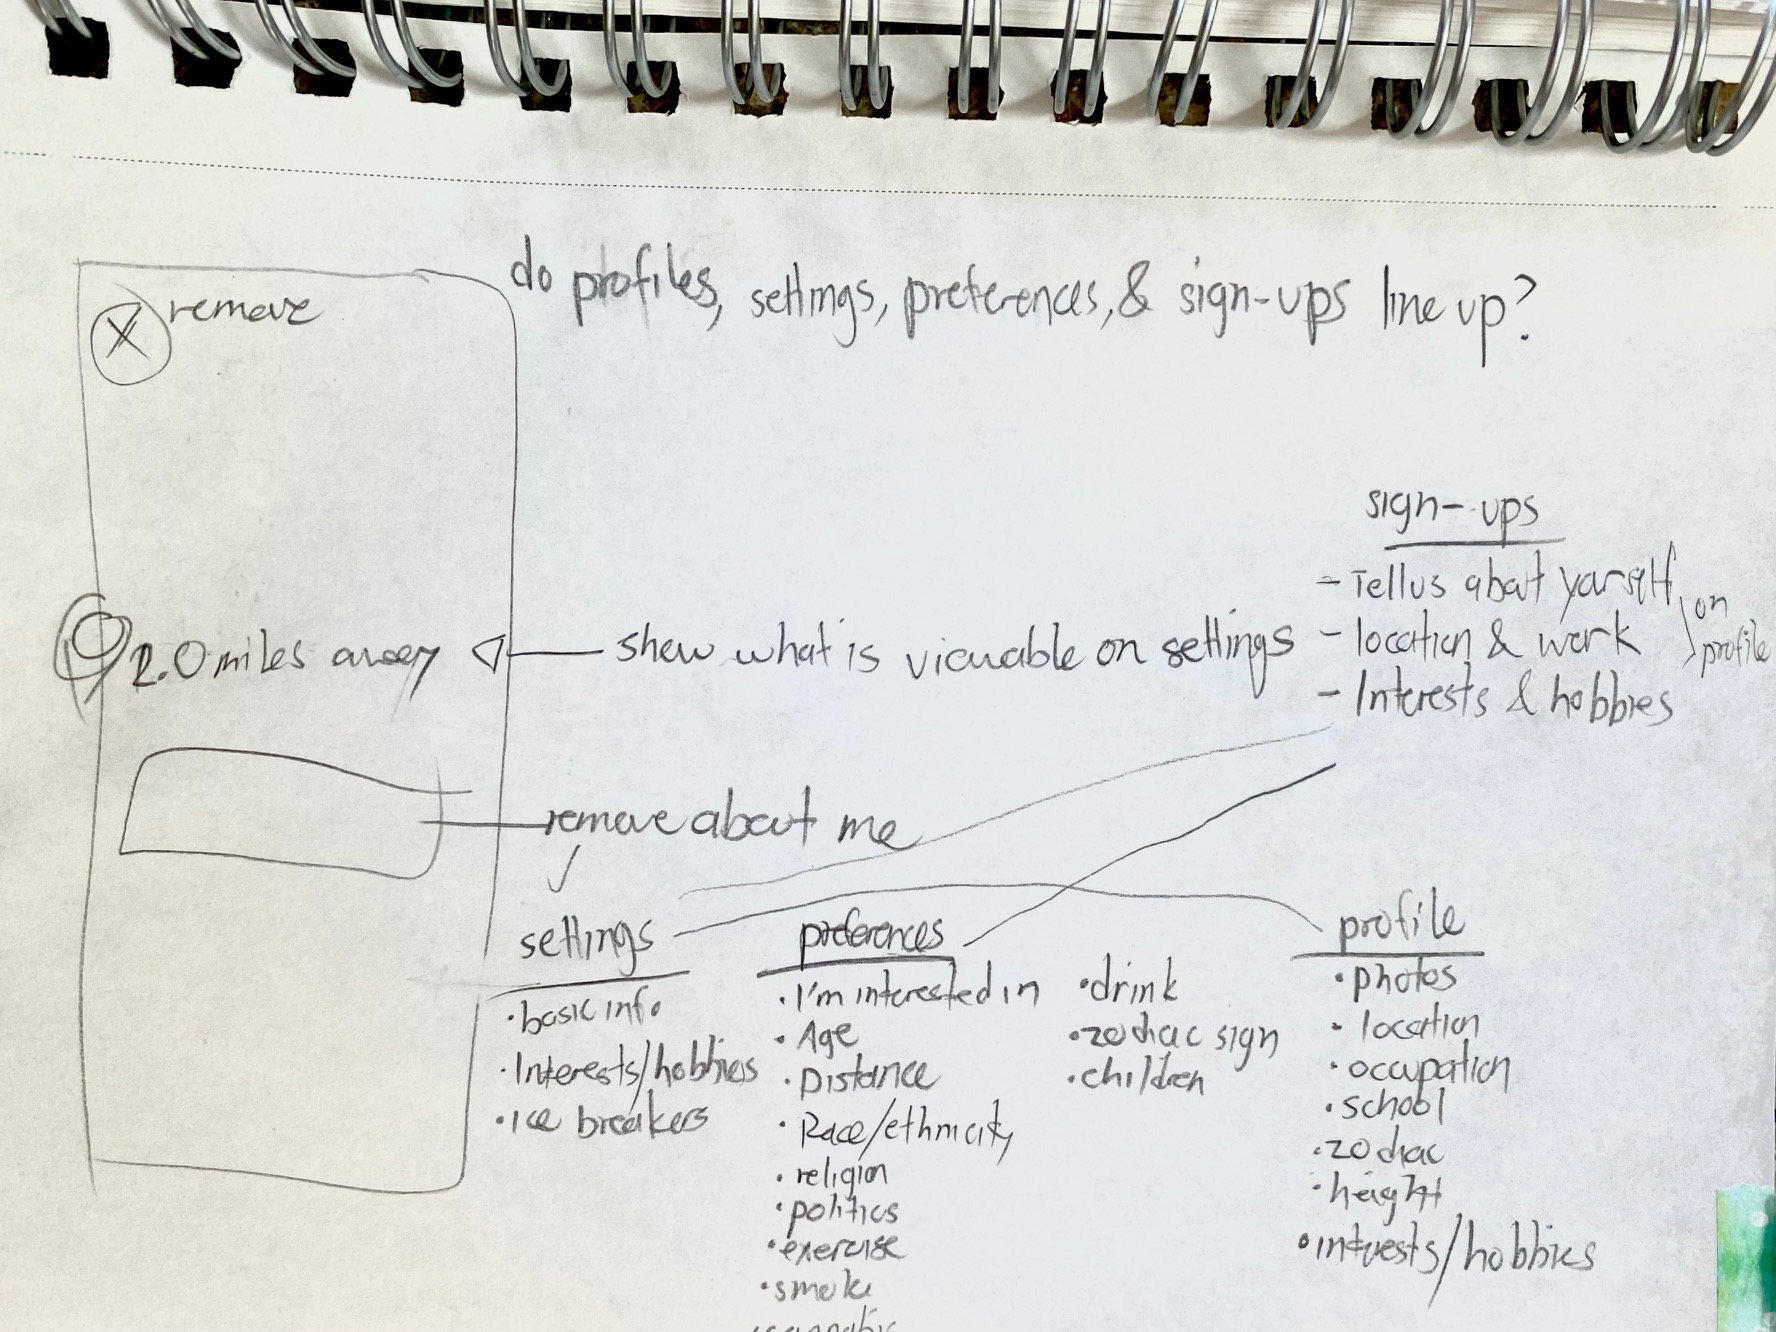 do profiles, settings, preferences, & sign-ups line up?
remove
sign-ups
- Tell us about yourself
- location & work
- Interests & hobbies
on
profile
2.0 miles away
show what is viewable on settings
remove about me
settings
• basic info
• Interests/hobbies
• Ice breakers
preferences
• I'm interested in
• Age
• Distance
• Race/ethnicity
• religion
• politics
• exercise
• smoke
• cannabis
• drink
• zodiac sign
• children
profile
• photos
• location
• occupation
• school
• zodiac
• height
• interests/hobbies